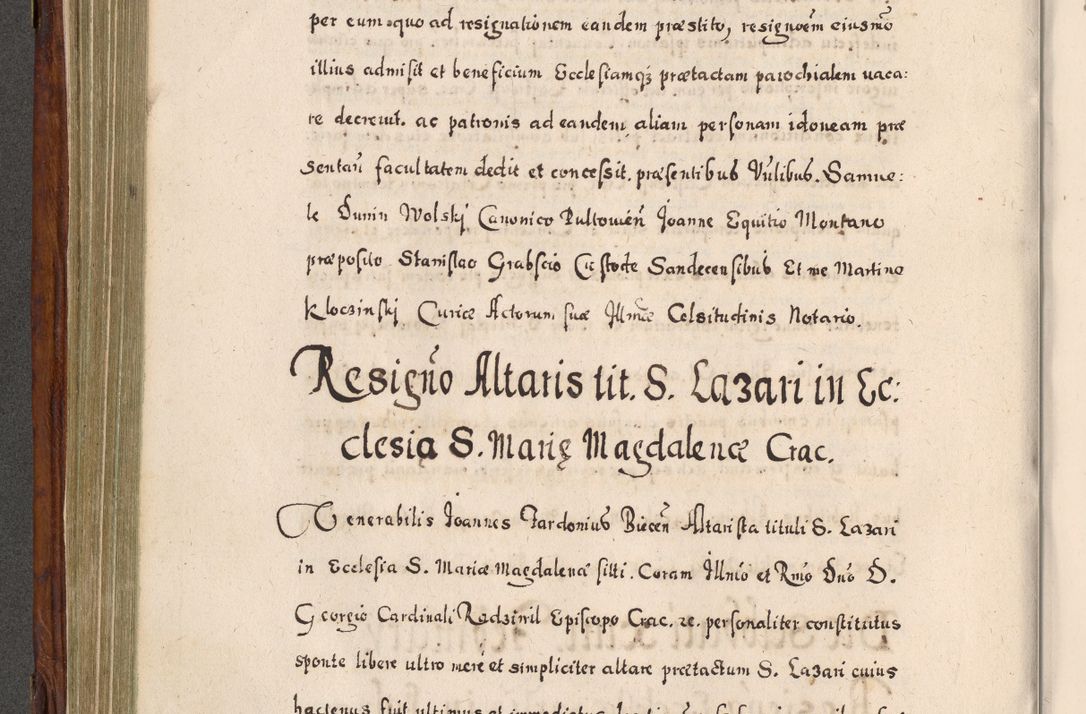 per eum quo ad resignationem eandem præstito, resignoẽm eiusmõ
illius admisit et beneficium Ecclesiamq3 prætactam parochialem vaca:
re decreuit. ac patronis ad eandem aliam personam idoneam præ
sentañ facultatem dedit et concessit, præsentibus Vñlibus. Samue:
le Dunin Wolskj Canonico Pultouieñ Joanne Equitio Montano
præposito Stanislao Grabscio Custode Sandecensibus Et me Martino
Kloczinskj Curiæ Actorum suæ Illmæ Celsitudinis Notario.
Resigño Altaris tit. S. Lazari in Ec:
clesia S. Marię Magdalenæ Crac.
Venerabilis Joannes Jardonius Bieceñ Altarista tituli S. Lazari
in Ecclesia S. Mariæ Magdalenæ siti. Coram Illmõ et Rmo Dno D.
Georgio Cardinali Radziwil Episcopo Crac. &c. personaliter constitutus
sponte libere ultro mere et simpliciter altare prætactum S. Lazari cuius
hactenus fuit ultimus et immediatus